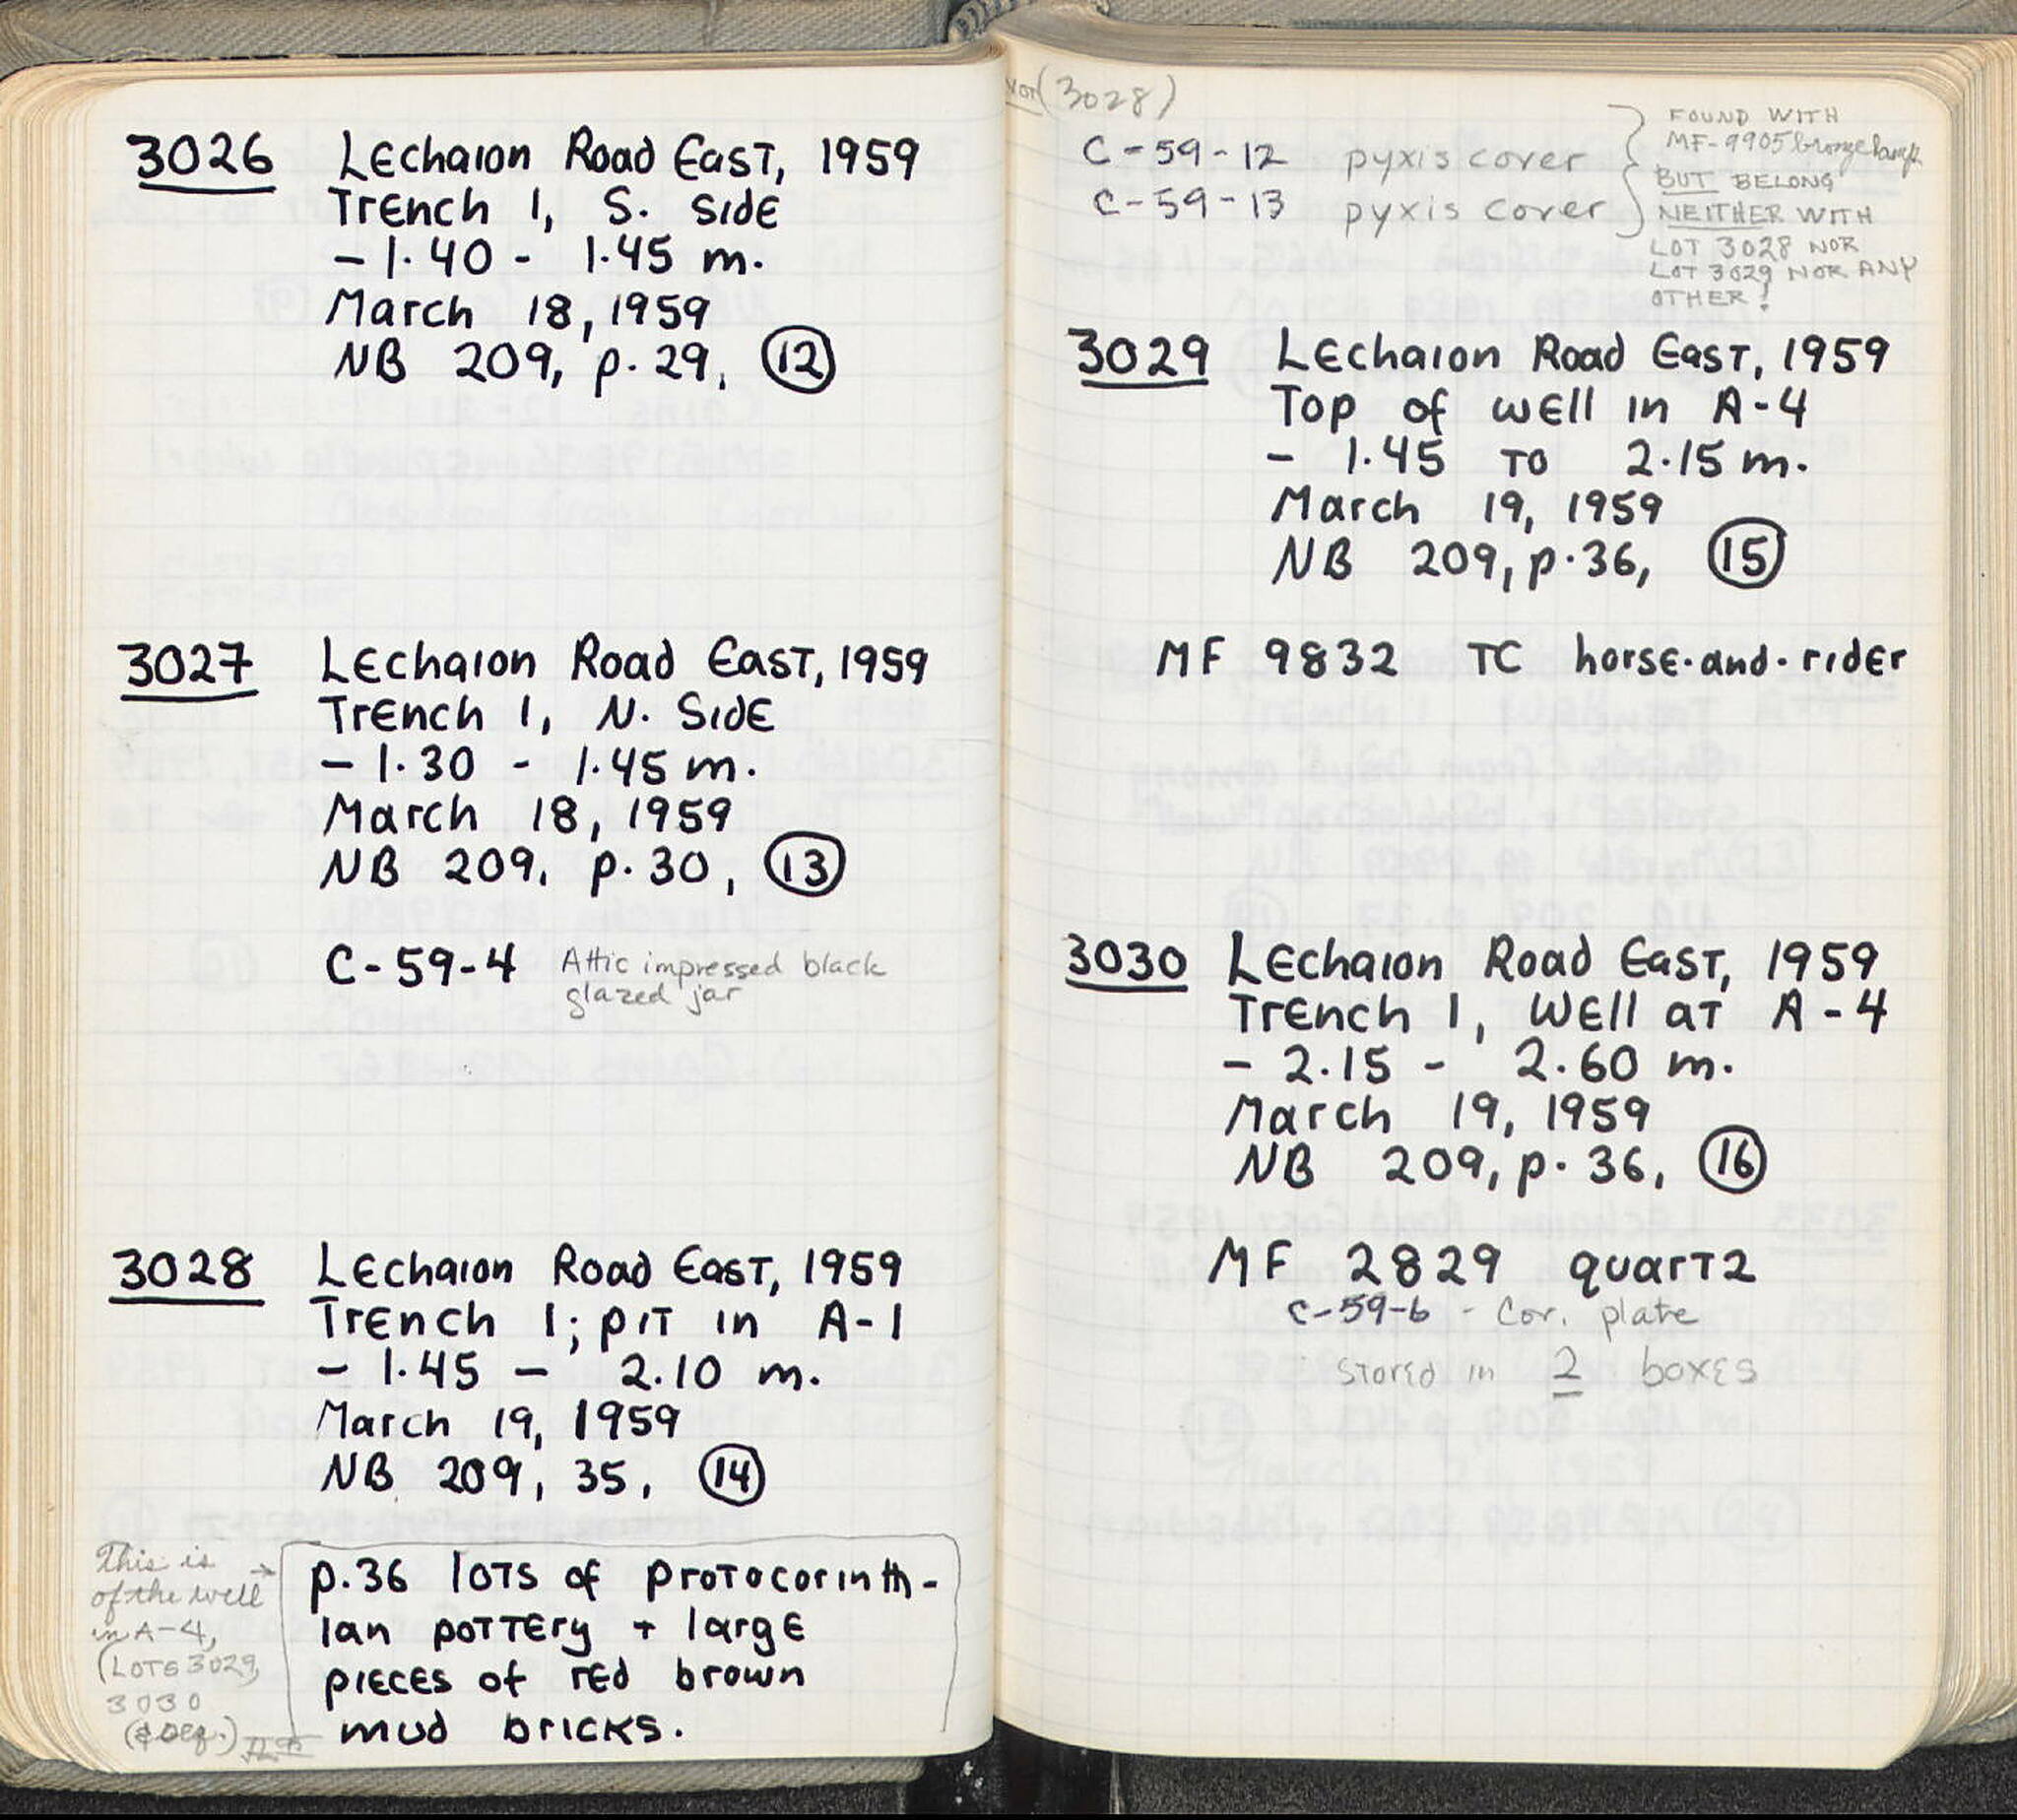 3026 Lechaion Road East, 1959
Trench 1, S. Side
- 1.40 - 1.45 m.
March 18, 1959
NB 209, p. 29, 12
3027 Lechaion Road East, 1959
Trench 1, N. Side
- 1.30 - 1.45 m.
March 18, 1959
NB 209, p. 30, 13
C-59-4 Attic impressed black
glazed jar
3028 Lechaion Road East, 1959
Trench 1; pit in A-1
- 1.45 - 2.10 m.
March 19, 1959
NB 209, 35, 14
This is →
of the well
in A-4,
(LOTS 3029,
3030
(& seq.)
p. 36 lots of protocorinth-
ian pottery + large
pieces of red brown
mud bricks.
NOT (3028)
C-59-12 pyxis cover
C-59-13 pyxis cover
FOUND WITH
MF-9905 bronze
BUT BELONG
NEITHER WITH
LOT 3028 NOR
LOT 3029 NOR ANY
OTHER!
3029 Lechaion Road East, 1959
Top of well in A-4
- 1.45 to 2.15 m.
March 19, 1959
NB 209, p. 36, 15
MF 9832 TC horse-and-rider
3030 Lechaion Road East, 1959
Trench 1, Well at A-4
- 2.15 - 2.60 m.
March 19, 1959
NB 209, p. 36, 16
MF 2829 quartz
C-59-6 - Cor. plate
stored in 2 boxes